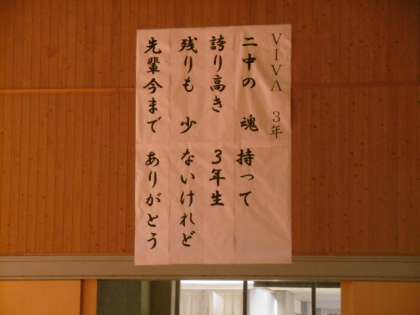 VIVA 3年
二中の 魂 持って
誇り高き 3年生
残りも 少ないけれど
先輩今まで ありがとう